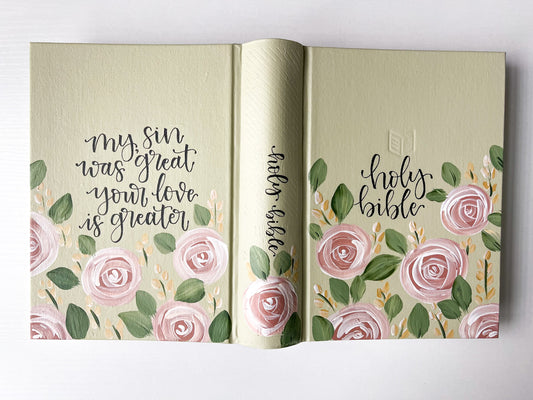 my sin
was great
your love
is greater
holy bible
holy
bible